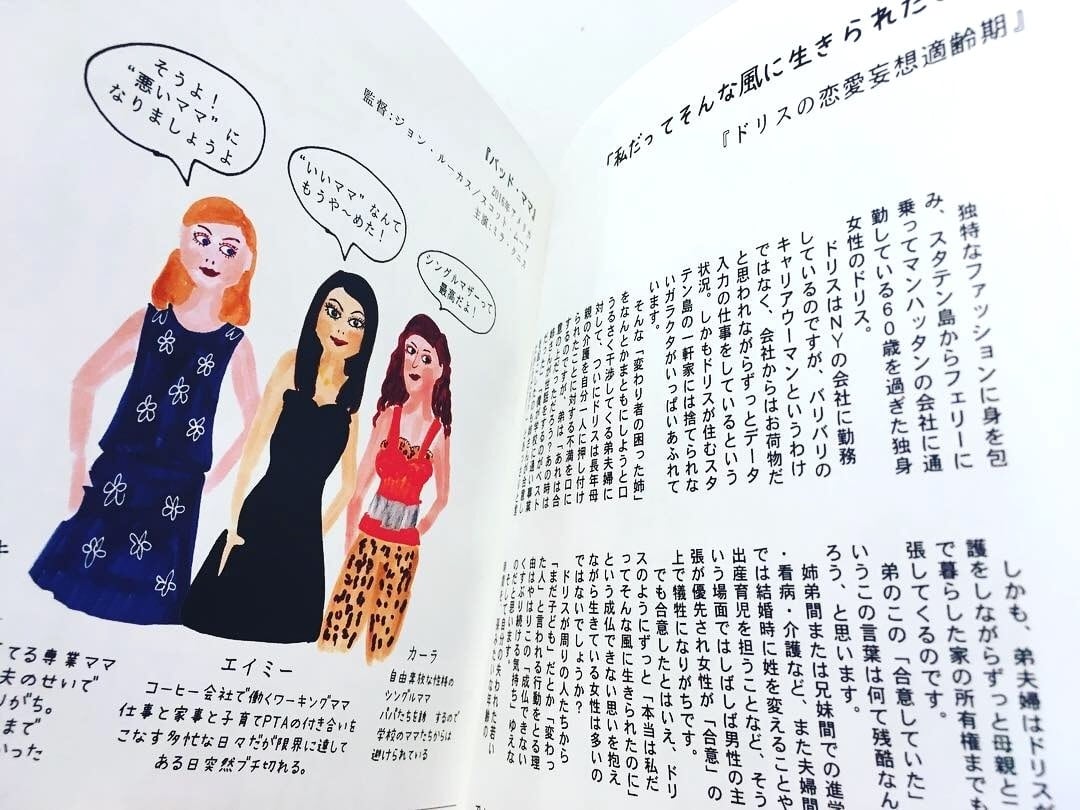 そうよ!
“悪いママ”に
なりましょうよ
“いいママ”なんて
もうや〜めた!
シングルマザーって
最高だよ!
『バッド・ママ』
2016年アメリカ
監督:ジョン・ルーカス/スコット・ムーア
主演:ミラ・クニス
てる専業ママ
夫のせいで
りがち。
まで
かった
エイミー
コーヒー会社で働くワーキングママ
仕事と家事と子育てPTAの付き合いを
こなす多忙な日々だが限界に達して
ある日突然ブチ切れる。
カーラ
自由奔放な性格の
シングルママ
パパたちを誘惑するので
学校のママたちからは
避けられている
「私だってそんな風に生きられた
『ドリスの恋愛妄想適齢期』
独特なファッションに身を包
み、スタテン島からフェリーに
乗ってマンハッタンの会社に通
勤している60歳を過ぎた独身
女性のドリス。
ドリスはNYの会社に勤務
しているのですが、バリバリの
キャリアウーマンというわけ
ではなく、会社からはお荷物だ
と思われながらずっとデータ
入力の仕事をしているという
状況。しかもドリスが住むスタ
テン島の一軒家には捨てられな
いガラクタがいっぱいあふれて
います。
そんな「変わり者の困った姉」
をなんとかまともにしようと口
うるさく干渉してくる弟夫婦に
対して、ついにドリスは長年母
親の介護を自分一人に押し付け
られたことに対する不満を口に
するのですが、弟は「あれは合
意の上だっただろう?あの時は
しかも、弟夫婦はドリス
護をしながらずっと母親と
で暮らした家の所有権までも
張してくるのです。
弟のこの「合意していた」
いうこの言葉は何て残酷なん
ろう、と思います。
姉弟間または兄妹間での進学
・看病・介護など、また夫婦間
では結婚時に姓を変えることや
出産育児を担うことなど、そう
いう場面ではしばしば男性の主
張が優先され女性が「合意」の
上で犠牲になりがちです。
でも合意したとはいえ、ドリ
スのようにずっと「本当は私だ
ってそんな風に生きられたのに」
という成仏できない思いを抱え
ながら生きている女性は多いの
ではないでしょうか?
ドリスが周りの人たちから
「まだ子ども」だとか「変わっ
た人」と言われる行動をとる理
由はやはりこの「成仏できない
くすぶり続ける気持ち」ゆえな
のだと思います。